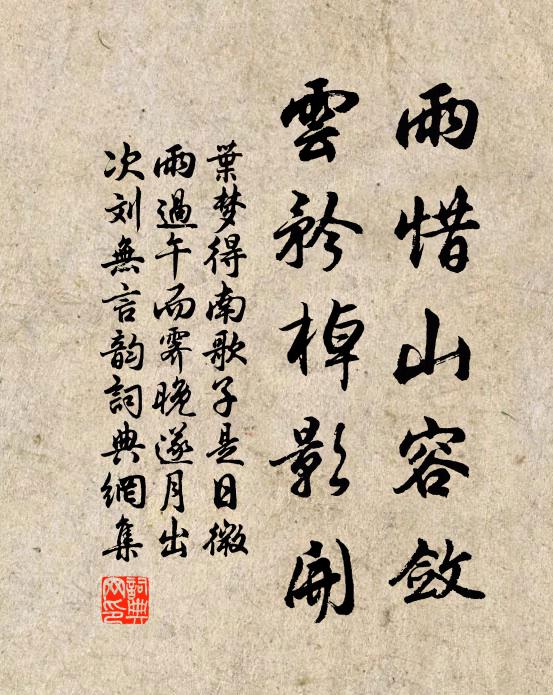 雨惜山容斂
雲矜棹影開
葉梦得南歌子是日微
雨過午而霁晚遂月出
次刘無言韵詞典網集
詞典網印